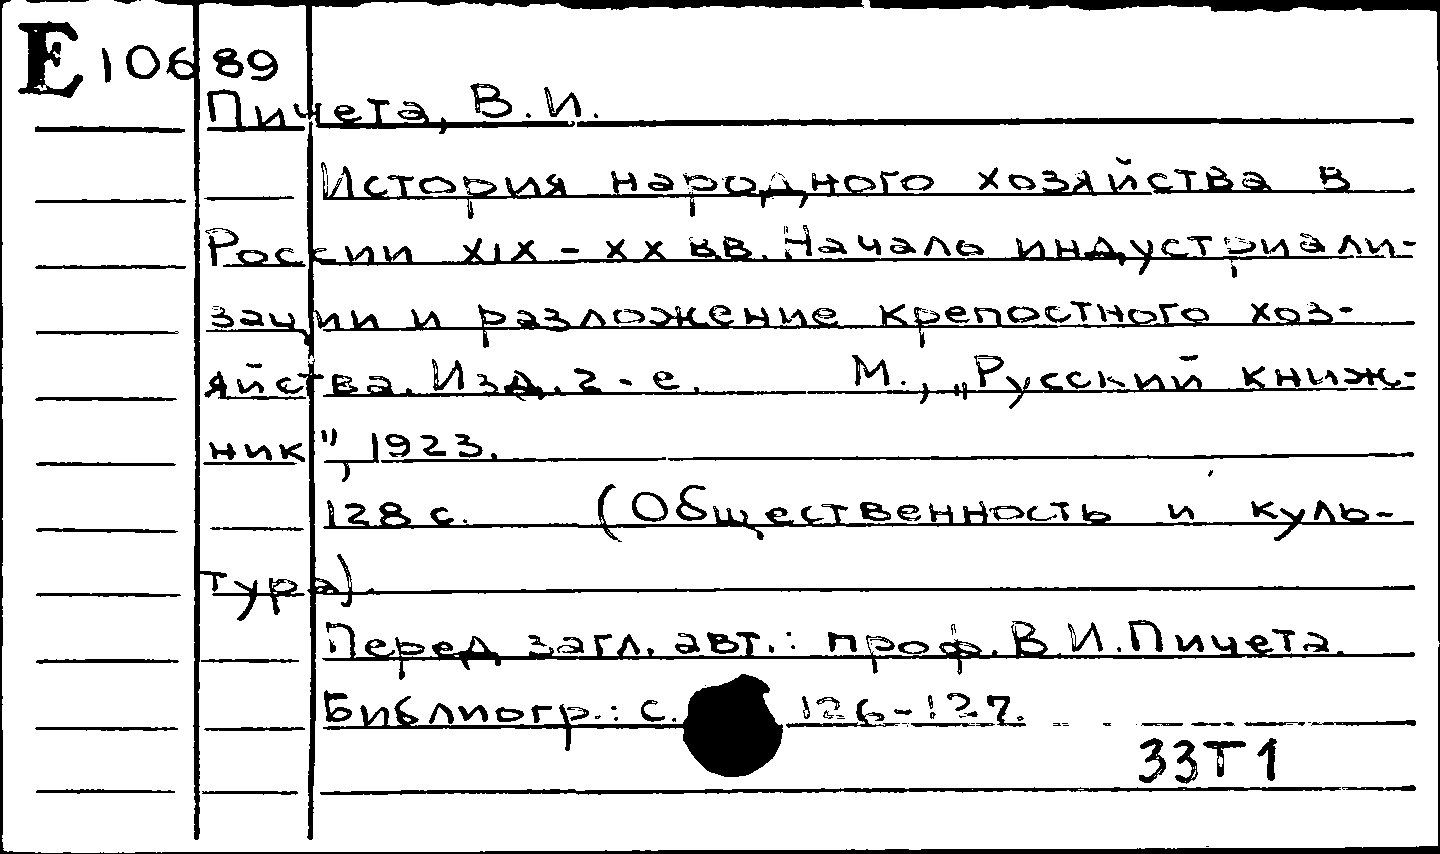 Е 10689
Пичета, В.И.
История народного хозяйства в
России XIX - XX вв. Начало индустриали-
зации и разложение крепостного хоз-
яйства. Изд. 2-е. М., „Русский книж-
ник", 1923.
128 с. (Общественность и куль-
тура).
Перед загл. авт.: проф. В.И. Пичета.
Библиогр.: с. 126-127.
33Т1